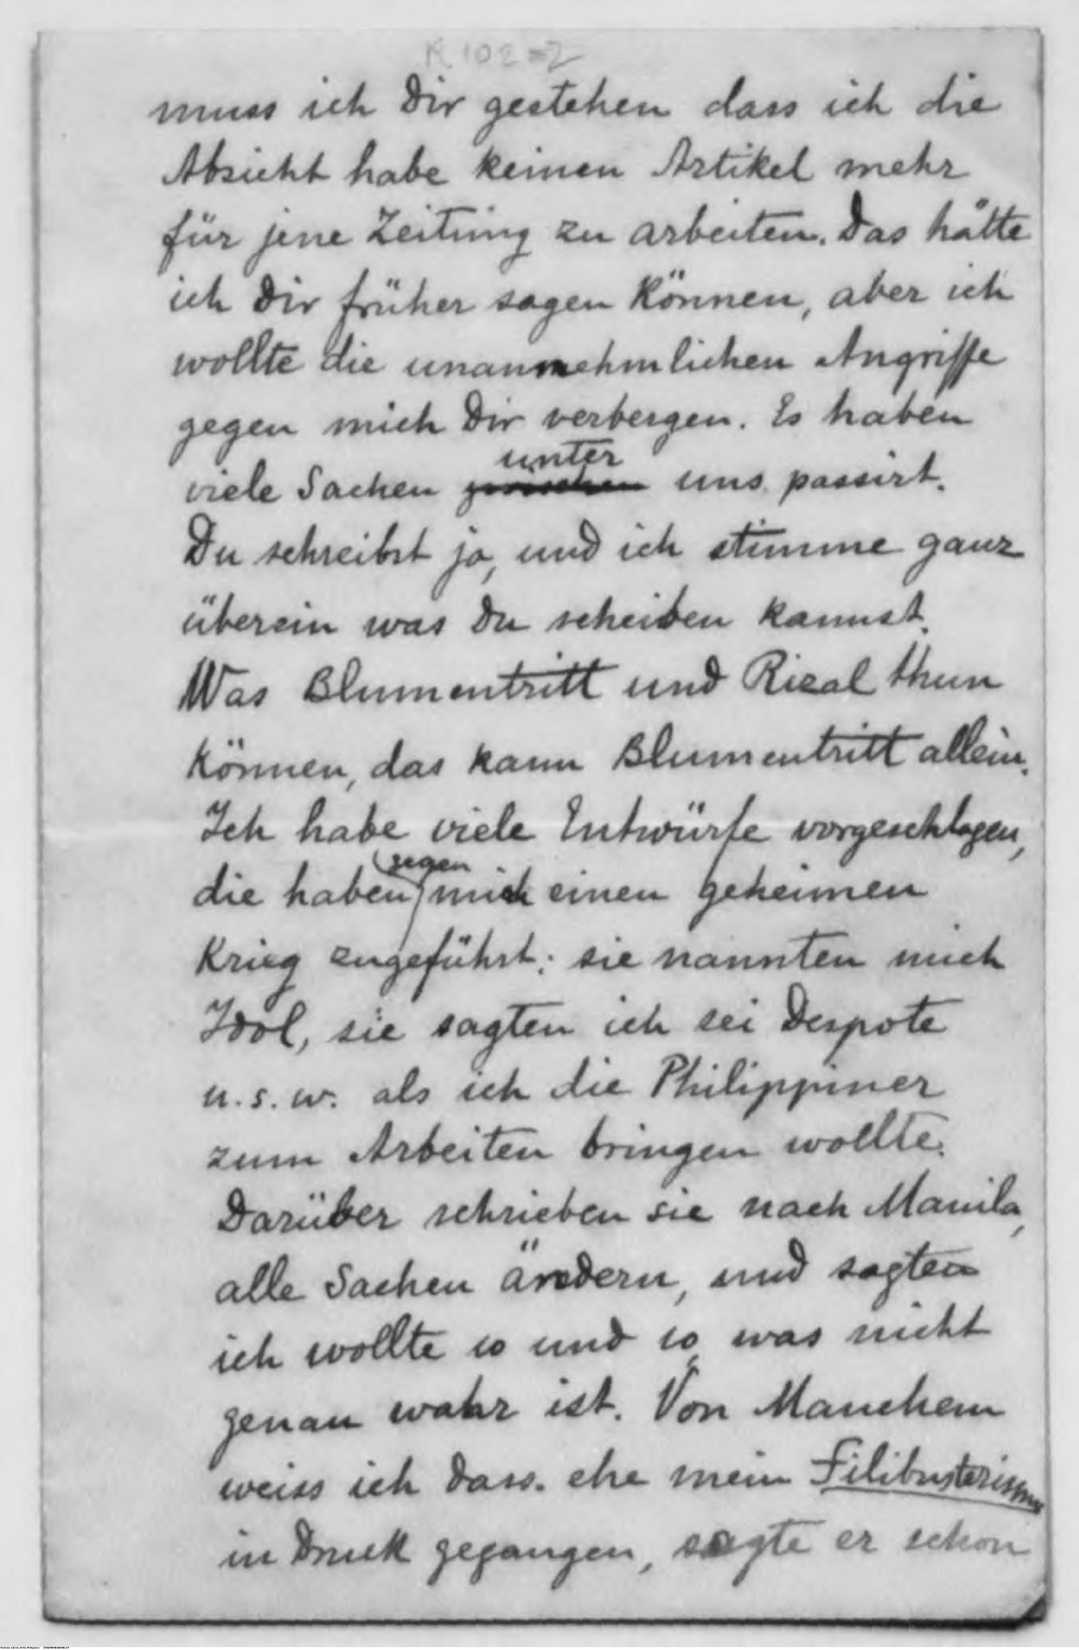 R 102-2
muss ich Dir gestehen dass ich die
Absicht habe keinen Artikel mehr
für jene Zeitung zu arbeiten. Das hätte
ich Dir früher sagen können, aber ich
wollte die unannehmlichen Angriffe
gegen mich Dir verbergen. Es haben
unter
viele Sachen zwischen uns passirt.
Du schreibst ja, und ich stimme ganz
überein was Du scheiben kannst.
Was Blumentritt und Rizal thun
können, das kann Blumentritt allein.
Ich habe viele Entwürfe vorgeschlagen,
gegen
die haben mich einen geheimen
Krieg zugeführt; sie nannten mich
Idol, sie sagten ich sei Despote
u. s. w. als ich die Philippiner
zum Arbeiten bringen wollte.
Darüber schrieben sie nach Manila,
alle Sachen ändern, und sagten
ich wollte so und so, was nicht
genau wahr ist. Von Manchem
weiss ich dass. ehe mein Filibusterismo
in Druck gegangen, sagte er schon